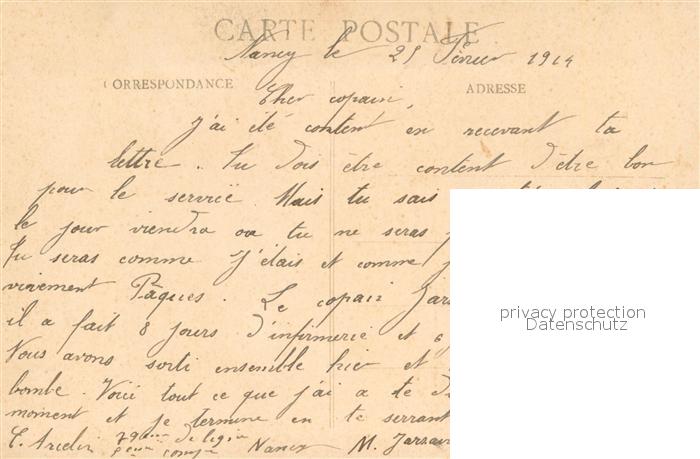 CARTE POSTALE
Nancy le 25 Février 1914
CORRESPONDANCE
ADRESSE
Cher copain,
J'ai été content en recevant ta
lettre. Tu dois être content d'être bon
pour le service. Mais tu sais
le jour viendra ou tu ne seras
Tu seras comme J'étais et comme
vivement Pâques. Le copain
il a fait 8 jours d'infirmerie et 6
Nous avons sorti ensemble hier et
bombe. Voici tout ce que j'ai a te
moment et je termine en te serrant
Nancy M.
privacy protection
Datenschutz